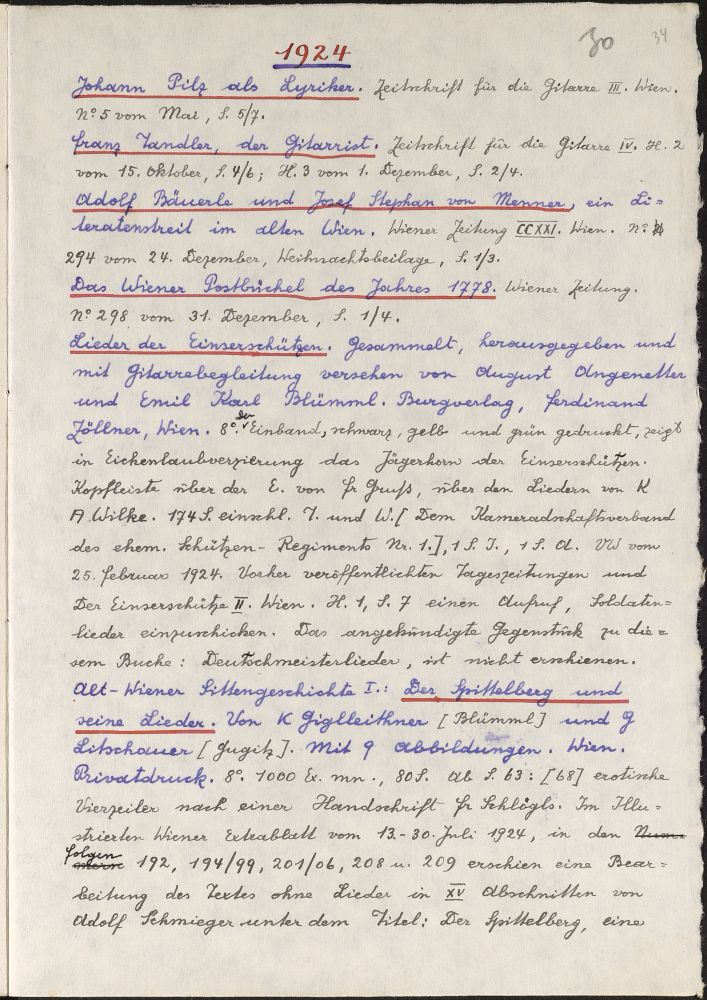 30 34
1924
Johann Pilz als Lyriker. Zeitschrift für die Gitarre III. Wien.
No 5 vom Mai, S. 5/7.
Franz Tandler, der Gitarrist. Zeitschrift für die Gitarre IV. H. 2
vom 15. Oktober, S. 4/6; H. 3 vom 1. Dezember, S. 2/4.
Adolf Bäuerle und Josef Stephan von Menner, ein Li=
teratenstreit im alten Wien. Wiener Zeitung CCXXI. Wien. No
294 vom 24. Dezember, Weihnachtsbeilage, S. 1/3.
Das Wiener Postbüchel des Jahres 1778. Wiener Zeitung.
No 298 vom 31. Dezember, S. 1/4.
Lieder der Einserschützen. Gesammelt, herausgegeben und
mit Gitarrebegleitung versehen von August Angenetter
und Emil Karl Blümml. Burgverlag, Ferdinand
Zöllner, Wien. 8o. der Einband, schwarz, gelb und grün gedruckt, zeigt
in Eichenlaubverzierung das Jägerhorn der Einserschützen.
Kopfleiste über der E. von Fr Gruß, über den Liedern von K
A Wilke. 174 S. einschl. T. und W. [Dem Kameradschaftsverband
des ehem. Schützen-Regiments Nr. 1.], 1 S. I., 1 S. A. VW vom
25. Februar 1924. Vorher veröffentlichten Tageszeitungen und
Der Einserschütze II. Wien. H. 1, S. 7 einen Aufruf, Soldaten=
lieder einzuschicken. Das angekündigte Gegenstück zu die=
sem Buche: Deutschmeisterlieder, ist nicht erschienen.
Alt-Wiener Sittengeschichte I.: Der Spittelberg und
seine Lieder. Von K Giglleithner [Blümml] und G
Litschauer [Gugitz]. Mit 9 Abbildungen. Wien.
Privatdruck. 8o. 1000 Ex. mn., 80 S. Ab S. 63: [68] erotische
Vierzeiler nach einer Handschrift Fr Schlögls. Im Illu=
strierten Wiener Extrablatt vom 13.-30. Juli 1924, in den Num=
mern folgen 192, 194/99, 201/06, 208 u. 209 erschien eine Bear=
beitung des Textes ohne Lieder in XV Abschnitten von
Adolf Schmieger unter dem Titel: Der Spittelberg, eine